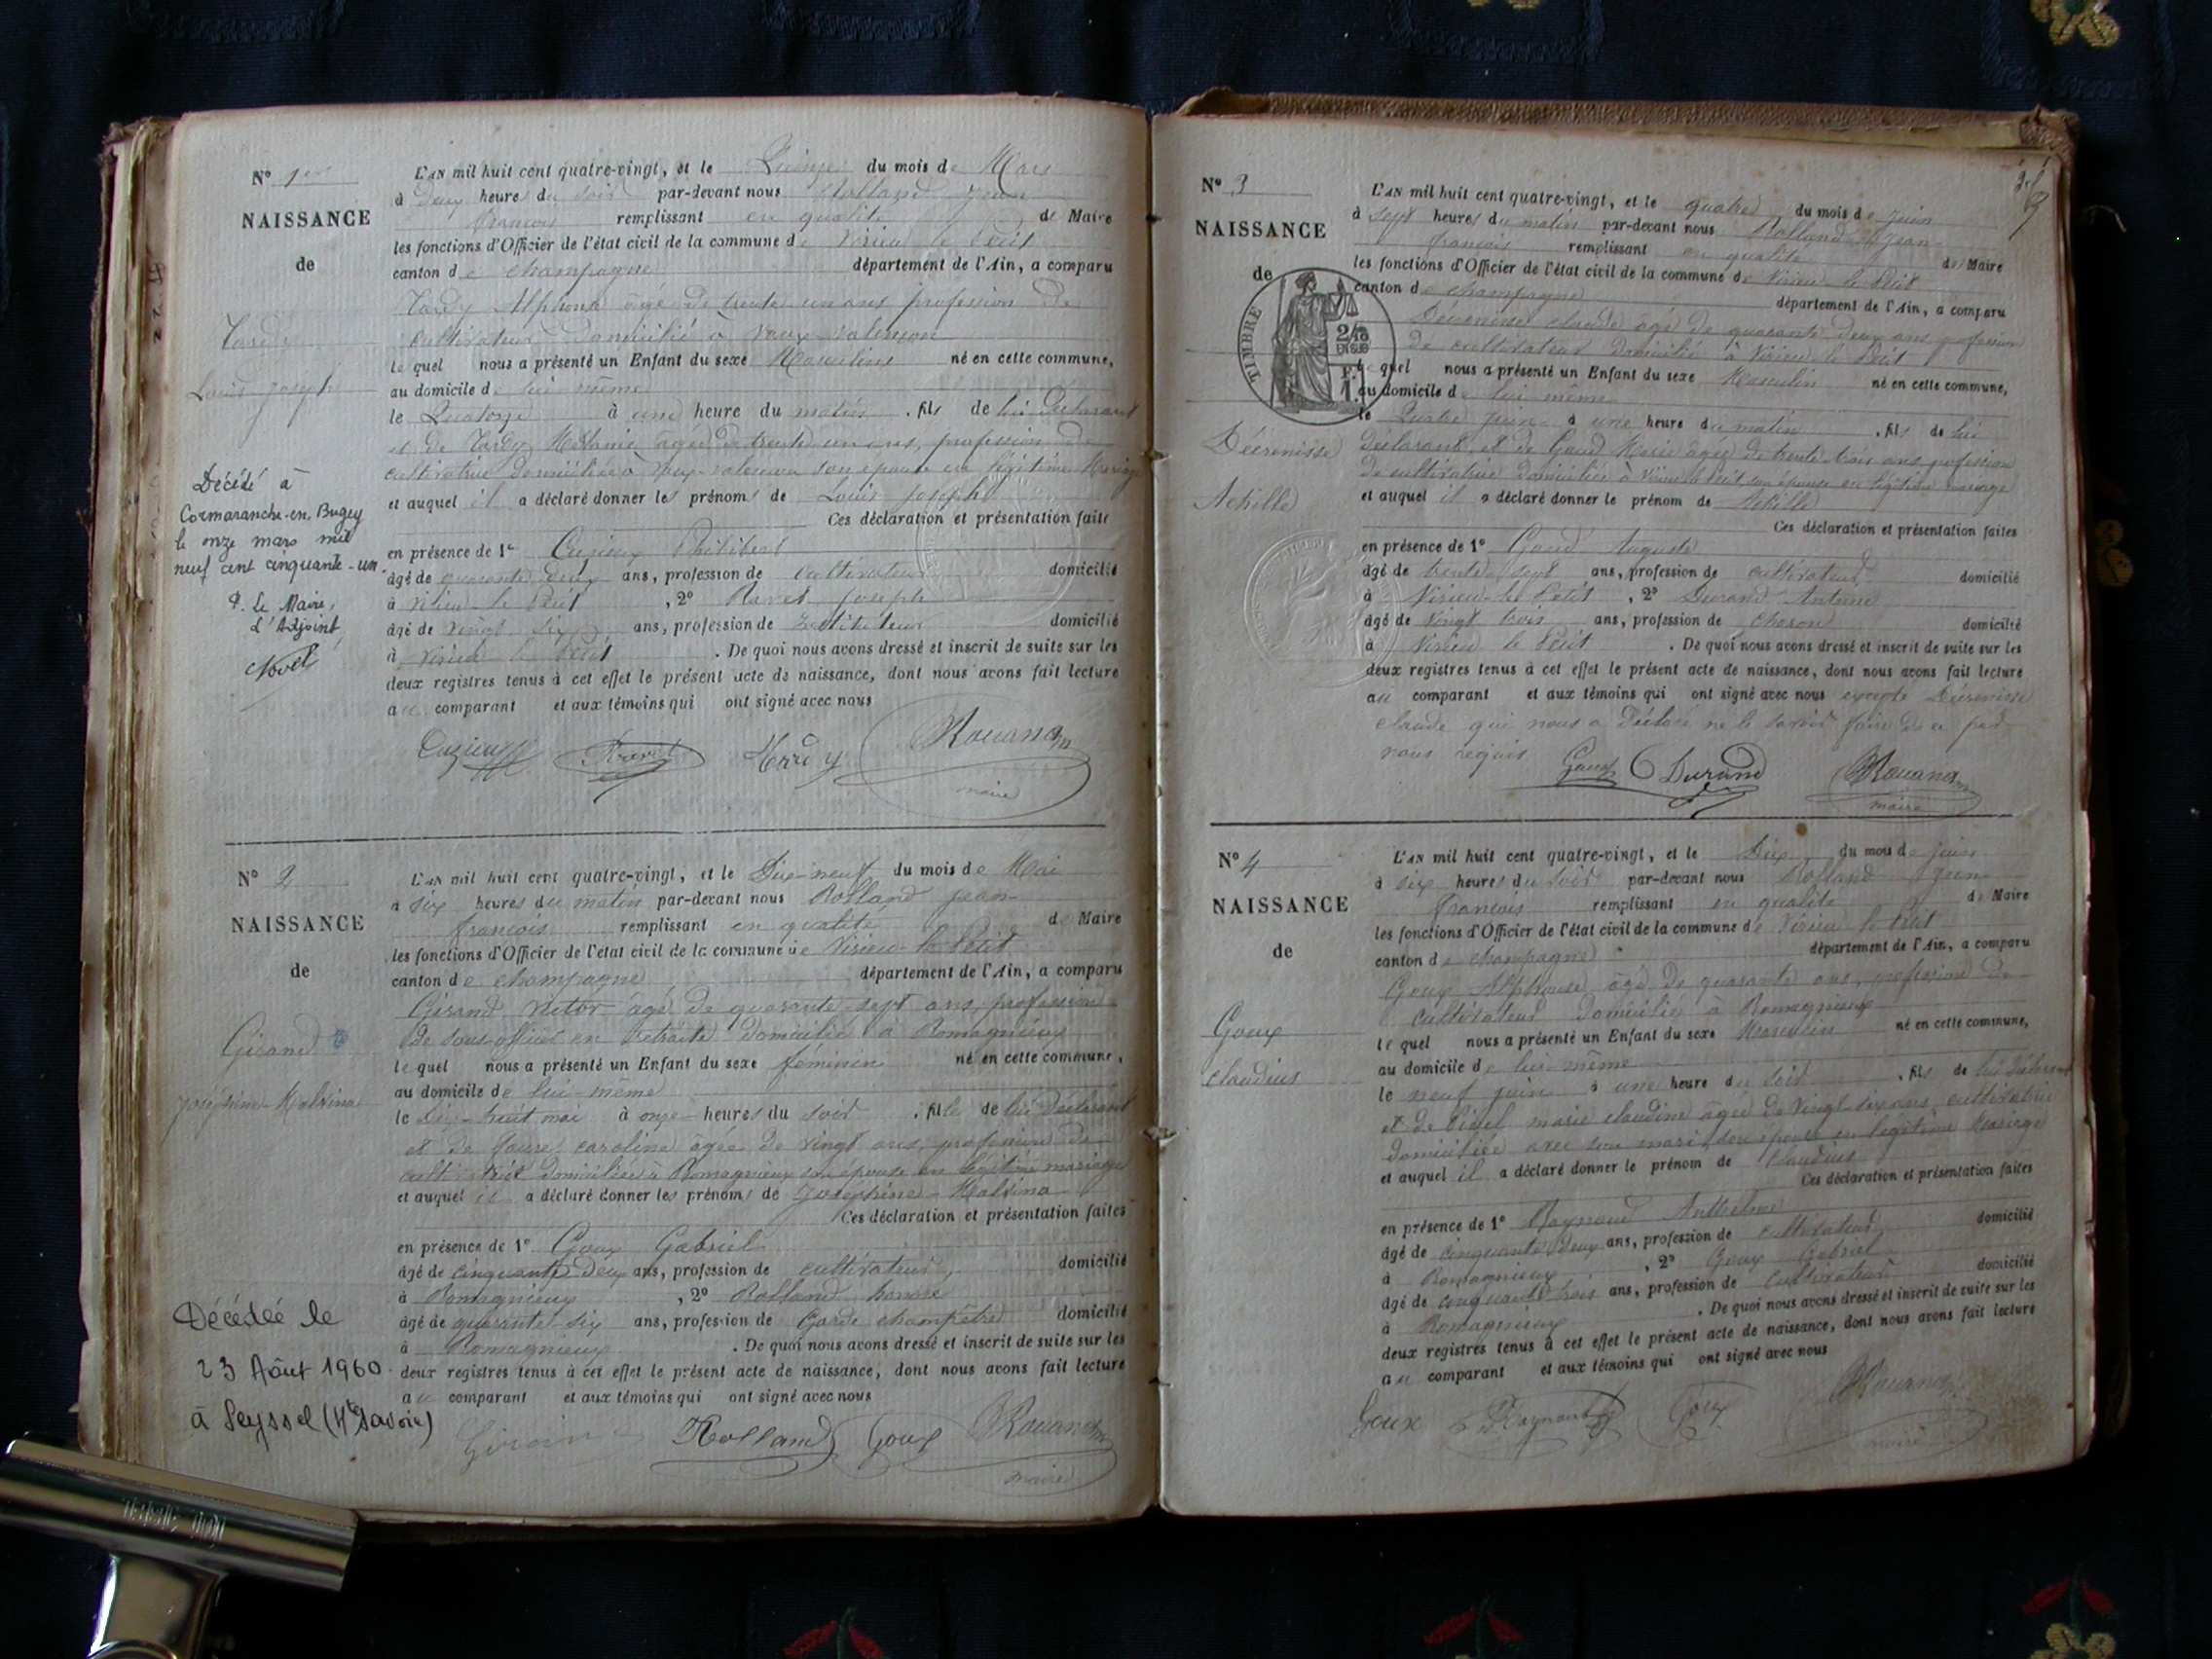 N° 1er
NAISSANCE
de
Tardy
Louis Joseph
Décédé à
Cormaranche-en-Bugey
le onze mars mil
neuf cent cinquante-un.
P. Le Maire,
L'Adjoint,
L'AN mil huit cent quatre-vingt, et le Quinze du mois de Mars
à Deux heures du soir par-devant nous Rolland Jean
François remplissant en qualité de Maire
les fonctions d'Officier de l'état civil de la commune de Virieu le Petit
canton de Champagne département de l'Ain, a comparu
Tardy Alphonse âgé de trente un ans profession de
cultivateur domicilié à Vaux-Valencon
le quel nous a présenté un Enfant du sexe Masculin né en cette commune,
au domicile de lui même
le Quatorze à une heure du matin, fils de lui Déclarant
et de Tardy Mélanie âgée de trente un ans, profession de
cultivatrice domiciliée à son épouse en légitime Mariage
et auquel il a déclaré donner les prénoms de Louis Joseph
Ces déclaration et présentation faite
en présence de 1° Cuzieux Philibert
âgé de quarante deux ans, profession de cultivateur domicilié
à Virieu-le-Petit, 2° Ravet Joseph
âgé de vingt six ans, profession de Instituteur domicilié
à Virieu le Petit. De quoi nous avons dressé et inscrit de suite sur les
deux registres tenus à cet effet le présent acte de naissance, dont nous avons fait lecture
au comparant et aux témoins qui ont signé avec nous
maire
N° 2
NAISSANCE
de
Girand
Joséphine-Malvina
Décédée le
23 Août 1960
à Seyssel (Hte Savoie)
L'AN mil huit cent quatre-vingt, et le Dix-neuf du mois de Mai
à six heures du matin par-devant nous Rolland Jean
François remplissant en qualité de Maire
les fonctions d'Officier de l'état civil de la commune de Virieu-le-Petit
canton de Champagne département de l'Ain, a comparu
Girand Victor âgé de quarante-sept ans, profession
de sous-officier en retraite domicilié à Romagnieux
le quel nous a présenté un Enfant du sexe féminin né en cette commune,
au domicile de lui-même
le Dix-huit mai à onze heures du soir, fille de lui Déclarant
et de caroline âgée de vingt ans, profession de
cultivatrice domiciliée à Romagnieux son épouse en légitime mariage
et auquel il a déclaré donner les prénoms de Joséphine-Malvina
Ces déclaration et présentation faites
en présence de 1° Goux Gabriel
âgé de cinquante deux ans, profession de cultivateur, domicilié
à Romagnieux, 2° Rolland honoré
âgé de quarante-six ans, profession de Garde champêtre domicilié
à Romagnieux. De quoi nous avons dressé et inscrit de suite sur les
deux registres tenus à cet effet le présent acte de naissance, dont nous avons fait lecture
au comparant et aux témoins qui ont signé avec nous
Rolland Goux
maire
N° 3
NAISSANCE
de
TIMBRE
Décrenisse
Achille
L'AN mil huit cent quatre-vingt, et le quatre du mois de juin
à sept heures du matin par-devant nous Rolland Jean
françois remplissant en qualité de Maire
les fonctions d'Officier de l'état civil de la commune de Virieu le Petit
canton de champagne département de l'Ain, a comparu
Décrenisse claude âgé de quarante deux ans profession
de cultivateur domicilié à Virieu le Petit
le quel nous a présenté un Enfant du sexe Masculin né en cette commune,
au domicile de lui même
le Quatre juin à une heure du matin, fils de lui
déclarant et de Marie âgée de trente-trois ans profession
de cultivatrice domiciliée à Virieu le Petit son épouse en légitime mariage
et auquel il a déclaré donner le prénom de Achille
Ces déclaration et présentation faites
en présence de 1° Auguste
âgé de trente-sept ans, profession de cultivateur domicilié
à Virieu-le-Petit, 2° Durand Antoine
âgé de vingt trois ans, profession de domicilié
à Virieu le Petit. De quoi nous avons dressé et inscrit de suite sur les
deux registres tenus à cet effet le présent acte de naissance, dont nous avons fait lecture
au comparant et aux témoins qui ont signé avec nous excepté Décrenisse
claude qui nous a déclaré ne le savoir faire de ce par
nous requis
Durand
maire
N° 4
NAISSANCE
de
Goux
claudius
L'AN mil huit cent quatre-vingt, et le Dix du mois de juin
à six heures du soir par-devant nous Rolland Jean
François remplissant en qualité de Maire
les fonctions d'Officier de l'état civil de la commune de Virieu le Petit
canton de champagne département de l'Ain, a comparu
Goux Alphonse âgé de quarante ans, profession de
cultivateur domicilié à Romagnieux
le quel nous a présenté un Enfant du sexe Masculin né en cette commune,
au domicile de lui-même
le neuf juin à une heure du soir, fils de lui déclarant
et de marie claudine âgée de vingt-six ans, cultivatrice
domiciliée avec son mari, son épouse en légitime Mariage
et auquel il a déclaré donner le prénom de claudius
Ces déclaration et présentation faites
en présence de 1° Raynaud Anthelme
âgé de cinquante deux ans, profession de cultivateur domicilié
à Romagnieux, 2° Goux Gabriel
âgé de cinquante trois ans, profession de cultivateur domicilié
à Romagnieux. De quoi nous avons dressé et inscrit de suite sur les
deux registres tenus à cet effet le présent acte de naissance, dont nous avons fait lecture
au comparant et aux témoins qui ont signé avec nous
Goux Raynaud Goux
maire